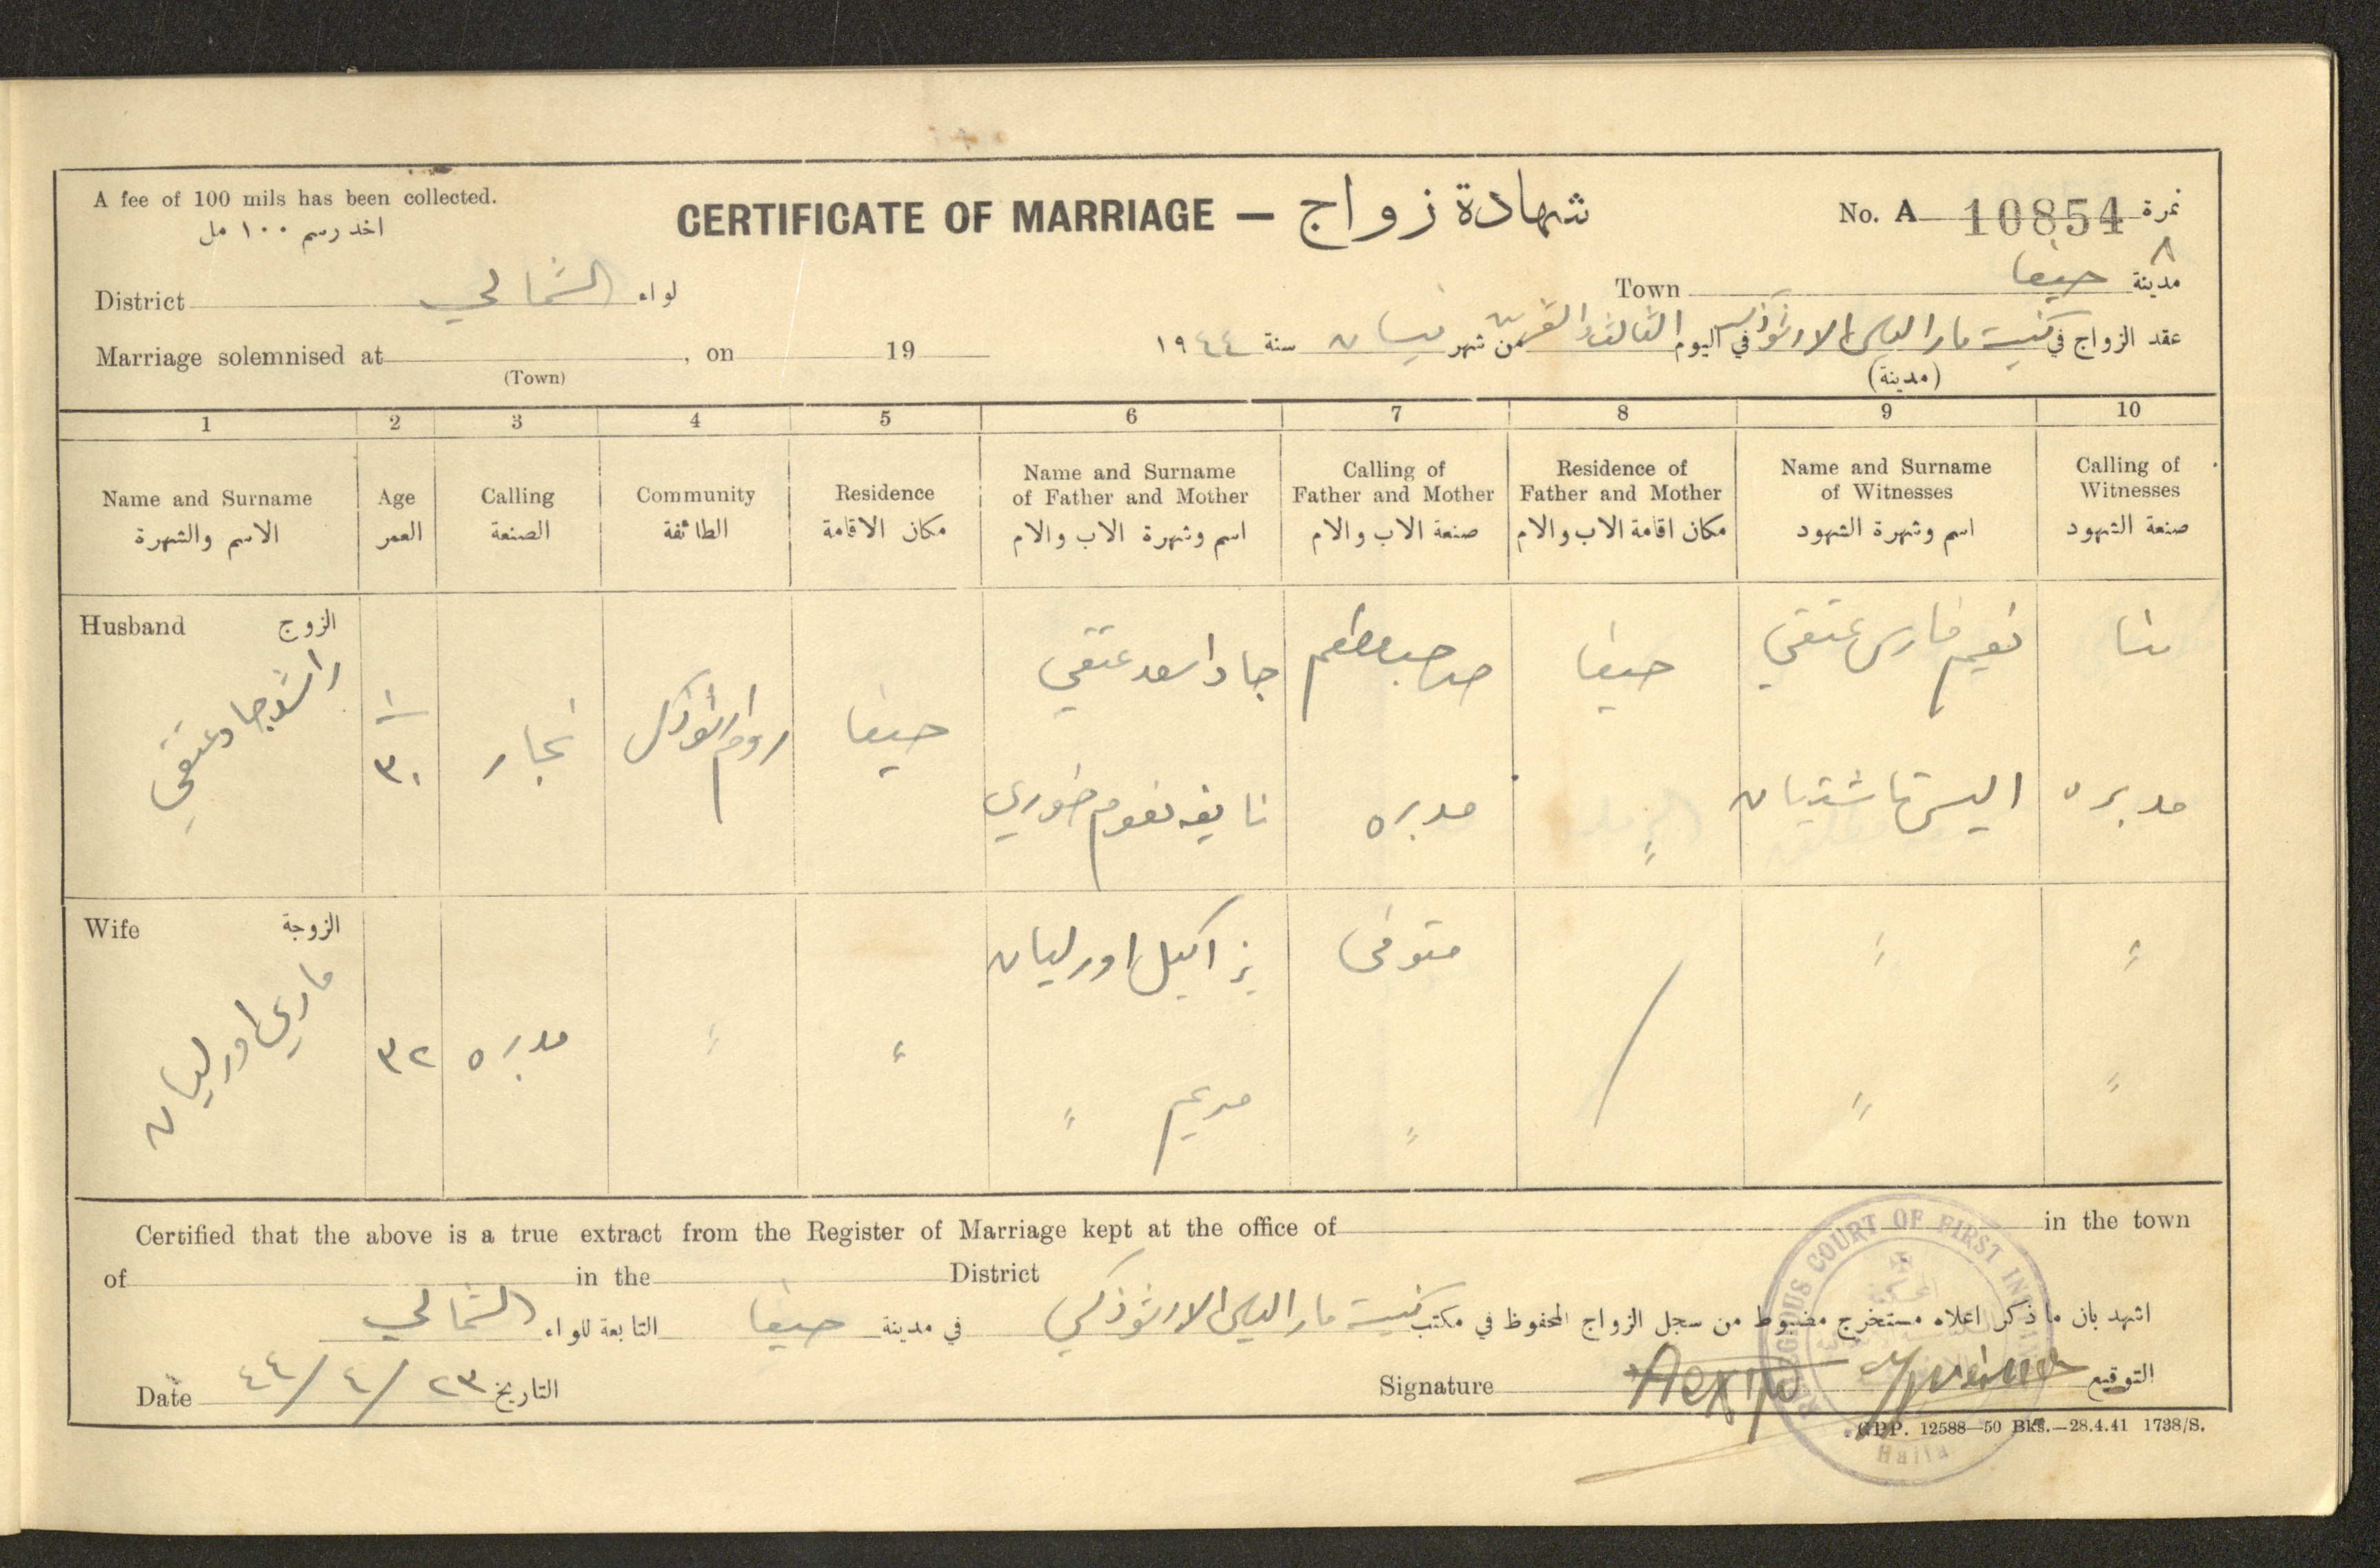 A fee of 100 mils has been collected.
اخذ رسم ١٠٠ مل
CERTIFICATE OF MARRIAGE — شهادة زواج
No. A 10854 نمرة
٨
District الشمالي لواء
Town حيفا مدينة
Marriage solemnised at , on 19
(Town)
عقد الزواج في كنيسة مار الياس الارثوذكس في اليوم الثالث والعشرين من شهر نيسان سنة ١٩٤٤
(مدينة)
1 2 3 4 5 6 7 8 9 10
Name and Surname
الاسم والشهرة
Age
العمر
Calling
الصنعة
Community
الطائفة
Residence
مكان الاقامة
Name and Surname
of Father and Mother
اسم وشهرة الاب والام
Calling of
Father and Mother
صنعة الاب والام
Residence of
Father and Mother
مكان اقامة الاب والام
Name and Surname
of Witnesses
اسم وشهرة الشهود
Calling of
Witnesses
صنعة الشهود
Husband الزوج
جاد عتقي
٣٠
نجار
روم ارثوذكس
حيفا
جاد اسعد عتقي
نايفه نعوم خوري
صاحب مطعم
مدبره
حيفا
〃
نعيم فارس عتقي
اليس
مدبره
Wife الزوجة
ماري اورليان
٣٢
مدبره
〃
〃
اورليان
مريم 〃
متوفى
〃
〃
〃
〃
〃
Certified that the above is a true extract from the Register of Marriage kept at the office of in the town
of in the District
اشهد بان ما ذكر اعلاه مستخرج مضبوط من سجل الزواج المحفوظ في مكتب كنيسة مار الياس الارثوذكسي في مدينة حيفا التابعة للواء الشمالي
Date ٢٣/٤/٤٤ التاريخ
Signature التوقيع
RELIGIOUS COURT OF FIRST INSTANCE
Haifa
GPP. 12588—50 Bks.—28.4.41 1738/S.